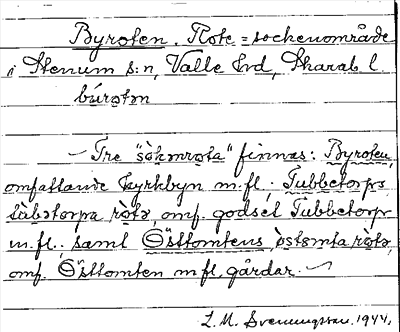 Byroten. Rote = sockenområde
i Stenum s:n, Valle hd, Skarab. l.
búrotən
– Tre "sòkənrota" finnas: Byroten,
omfattande kyrkbyn m.fl., Tubbetorps
tùbətorps ròtə, omf. godset Tubbetorp
m.fl., samt Östtomtens, òstəmta ròtə,
omf. Östtomten m fl. gårdar. –
L. M. Svenungsson. 1944.